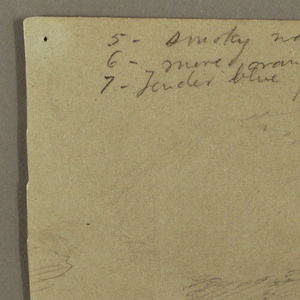 5 - smoky
6 - more
7 - Tender blue